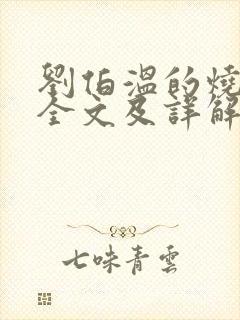 劉伯溫的燒
全文及詳解
七味青雲